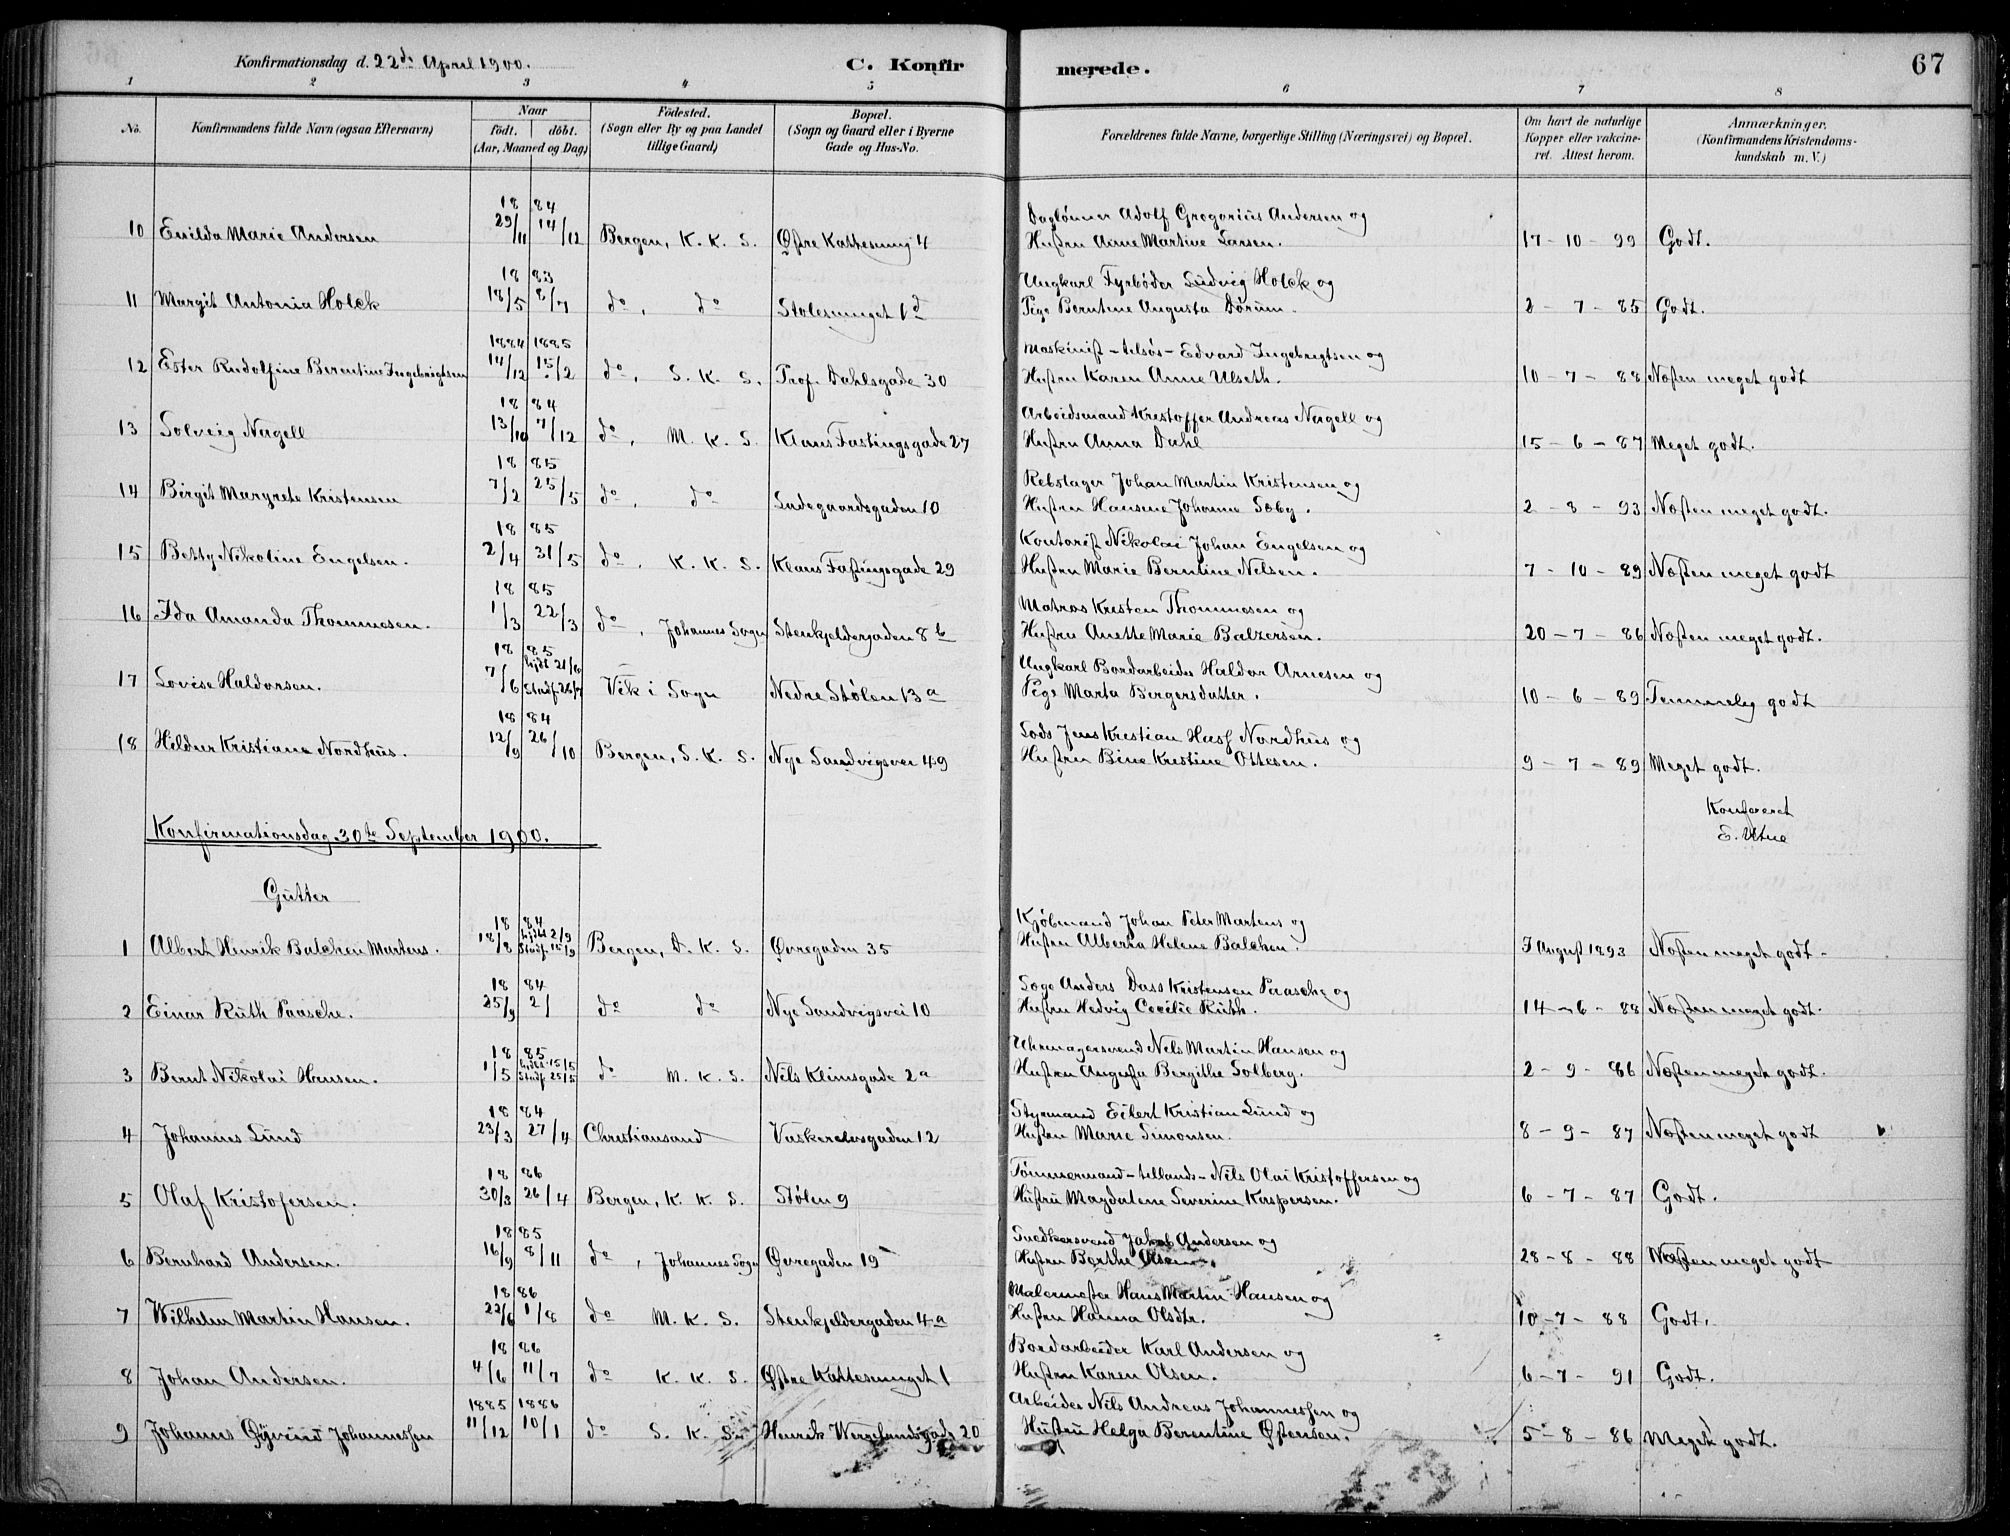 Konfirmationsdag d. 22de April 1900. C. Konfirmerede. 67
1 2 3 4 5 6 7 8
No. Konfirmandens fulde Navn (ogsaa Efternavn) Naar födt. döbt. (Aar, Maaned og Dag) Födested. (Sogn eller By og paa Landet tillige Gaard) Bopæl. (Sogn og Gaard eller i Byerne Gade og Hus-No. Forældrenes fulde Navne, borgerlige Stilling (Næringsvei) og Bopæl. Om havt de naturlige Kopper eller vakcineret. Attest herom. Anmærkninger. (Konfirmandens Kristendomskundskab m. V.)
18 84 Daglønner Adolf Gregorius Andersen og
10 Enilda Marie Andersen 29/11 14/12 Bergen, K. K. S. Østre Kattesmug 4 Hustru Anne Martine Larsen. 17-10-99 Godt.
18 83 Ungkarl Fyrbøder Ludvig Holck og
11 Margit Antonia Holck 18/5 8/7 do, do Stølesmuget 1d Pige Berntine Augusta Dørum. 2-7-85 Godt.
1884 1885 Maskinist - tilsøs - Edvard Ingebrigtsen og
12 Ester Rudolfine Berentine Ingebrigtsen 14/12 15/2 do, S. K. S. Prof. Dahlsgade 30 Hustru Karen Anne Ulseth. 10-7-88 Næsten meget godt
18 84 Arbeidsmand Kristoffer Andreas Nagell og
13 Solveig Nagell 13/10 7/12 do, M. K. S. Klaus Fastingsgade 27 Hustru Anna Dahl 15-6-87 Meget godt.
18 85 Rebslager Johan Martin Kristensen og
14 Birgit Margrete Kristensen 7/2 25/5 do, do Ladegaardsgaden 10 Hustru Hansine Johanne Soby. 2-8-93 Næsten meget godt.
18 85 Kontorist Nikolai Johan Engelsen og
15 Betty Nikoline Engelsen. 2/4 31/5 do, K. K. S. Klaus Fastingsgade 29 Hustru Marie Berntine Nilsen. 7-10-89 Næsten meget godt
18 85 Matros Kristen Thommesen og
16 Ida Amanda Thommesen. 1/3 22/3 do, Johannes Sogn Stenkjeldergaden 8b Hustru Anette Marie Balzersen. 20-7-86 Næsten meget godt.
18 85 Ungkarl Bordarbeider Haldor Arnesen og
17 Lovise Haldorsen. 7/6 hjdbt 21/6 Stadf. 26/7 Vik i Sogn Nedre Stølen 13a Pige Marta Bergersdatter. 10-6-89 Temmelig godt
18 84 Lods Jens Kristian Hass Nordhus og
18 Hildur Kristiane Nordhus. 12/9 26/10 Bergen, S. K. S. Nye Sandvigsvei 49 Hustru Bine Kristine Ottesen. 9-7-89 Meget godt.
Konfereret
E. Utne
Konfirmationsdag 30te September 1900.
Gutter
18 84 Kjøbmand Johan Peter Martens og
1 Albert Henrik Balchen Martens. 18/8 hjdbt 2/9 Stadf. 15/9 Bergen, D. K. S. Øvregaden 35 Hustru Alberta Helene Balchen. 7 August 1893 Næsten meget godt.
18 84 Anders Dass Kristensen Paasche og
2 Einar Ruth Paasche. 25/9 2/ do do Nye Sandvigsvei 10 Hustru Hedvig Cecilie Ruth. 14-6-88 Næsten meget godt.
18 85 Uhrmagersvend Nils Martin Hansen og
3 Bernt Nikolai Hansen. 1/5 hjdbt 15/5 Stadf. 25/5 do M. K. S. Nils Klimsgade 2a Hustru Augusta Bergithe Solberg. 2-9-86 Næsten meget godt.
18 84 Styrmand Eilert Kristian Lund og
4 Johannes Lund 23/3 27/4 Christiansand Vaskerelvsgaden 12 Hustru Marie Simonsen. 8-9-87 Næsten meget godt
18 86 Tømmermand - tillands - Nils Olai Kristoffersen og
5 Olaf Kristofersen. 30/3 26/4 Bergen, K. K. S. Stølen 9 Hustru Magdalene Severine Kaspersen. 6-7-87 Godt.
18 85 Snedkersvend Jakob Andersen og
6 Bernhard Andersen. 16/9 8/11 do, Johannes Sogn Øvregaden 19 Hustru Berthe Olsen. 28-8-88 Næsten meget godt
18 86 Malermester Hans Martin Hansen og
7 Wilhelm Martin Hansen. 22/6 1/8 do M. K. S. Stenkjeldergaden 4a Hustru Hanna Olsdtr. 10-7-88 Godt.
18 86 Bordarbeider Karl Andersen og
8 Johan Andersen. 4/6 11/7 do K. K. S. Østre Kattesmuget 1 Hustru Karen Olsen. 6-7-91 Godt.
1885 1886 Arbeider Nils Andreas Johannessen og
9 Johannes Øyvind Johannessen 11/12 10/1 do S. K. S. Henrik Wergelandsgade 20 Hustru Helga Berentine Østensen. 5-8-86 Meget godt.